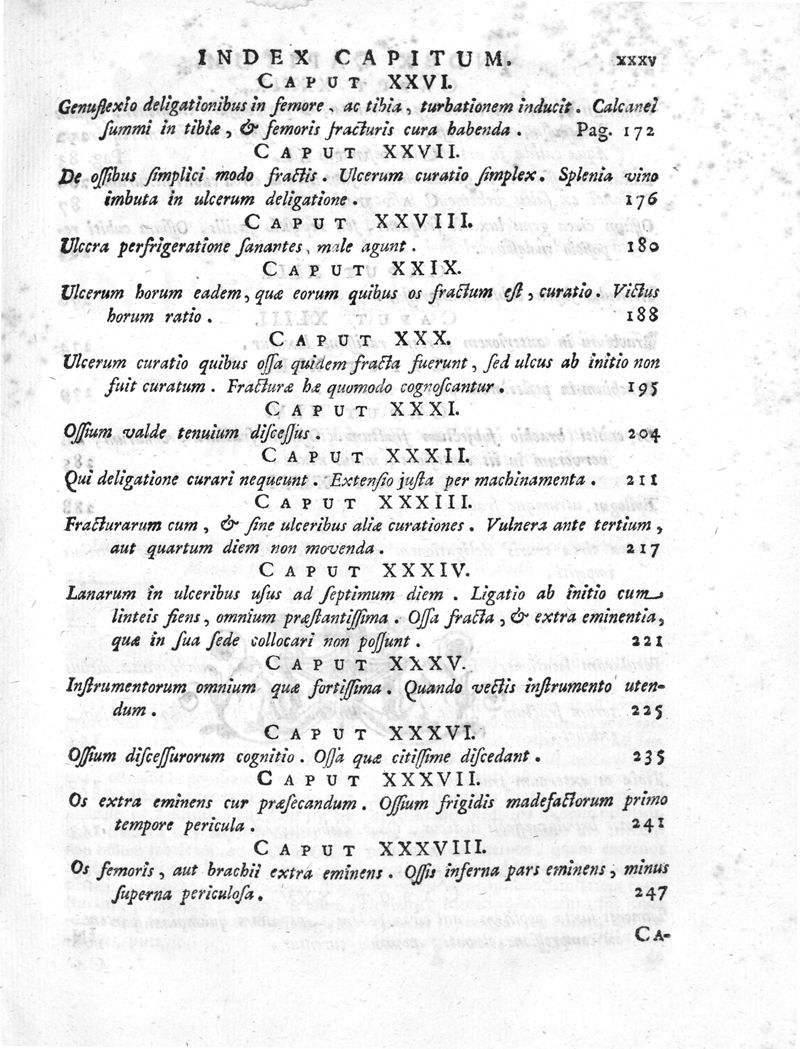 INDEX CAPITUM. xxxv
CAPUT XXVI.
Genuflexio deligationibus in femore, ac tibia, turbationem inducit. Calcanei
ſummi in tibiæ, & femoris fracturis cura habenda. Pag. 172
CAPUT XXVII.
De oſſibus ſimplici modo fractis. Ulcerum curatio ſimplex. Splenia vino
imbuta in ulcerum deligatione. 176
CAPUT XXVIII.
Ulcera perfrigeratione ſanantes, male agunt. 180
CAPUT XXIX.
Ulcerum horum eadem, quæ eorum quibus os fractum eſt, curatio. Victus
horum ratio. 188
CAPUT XXX.
Ulcerum curatio quibus oſſa quidem fracta fuerunt, ſed ulcus ab initio non
fuit curatum. Fracturæ hæ quomodo cognoſcantur. 195
CAPUT XXXI.
Oſſium valde tenuium diſceſſus. 204
CAPUT XXXII.
Qui deligatione curari nequeunt. Extenſio juſta per machinamenta. 211
CAPUT XXXIII.
Fracturarum cum, & ſine ulceribus aliæ curationes. Vulnera ante tertium,
aut quartum diem non movenda. 217
CAPUT XXXIV.
Lanarum in ulceribus uſus ad ſeptimum diem. Ligatio ab initio cum
linteis fiens, omnium præſtantiſſima. Oſſa fracta, & extra eminentia,
quæ in ſua ſede collocari non poſſunt. 221
CAPUT XXXV.
Inſtrumentorum omnium quæ fortiſſima. Quando vectis inſtrumento uten-
dum. 225
CAPUT XXXVI.
Oſſium diſceſſurorum cognitio. Oſſa quæ citiſſime diſcedant. 235
CAPUT XXXVII.
Os extra eminens cur præſecandum. Oſſium frigidis madefactorum primo
tempore pericula. 241
CAPUT XXXVIII.
Os femoris, aut brachii extra eminens. Oſſis inferna pars eminens, minus
ſuperna periculoſa. 247
CA-